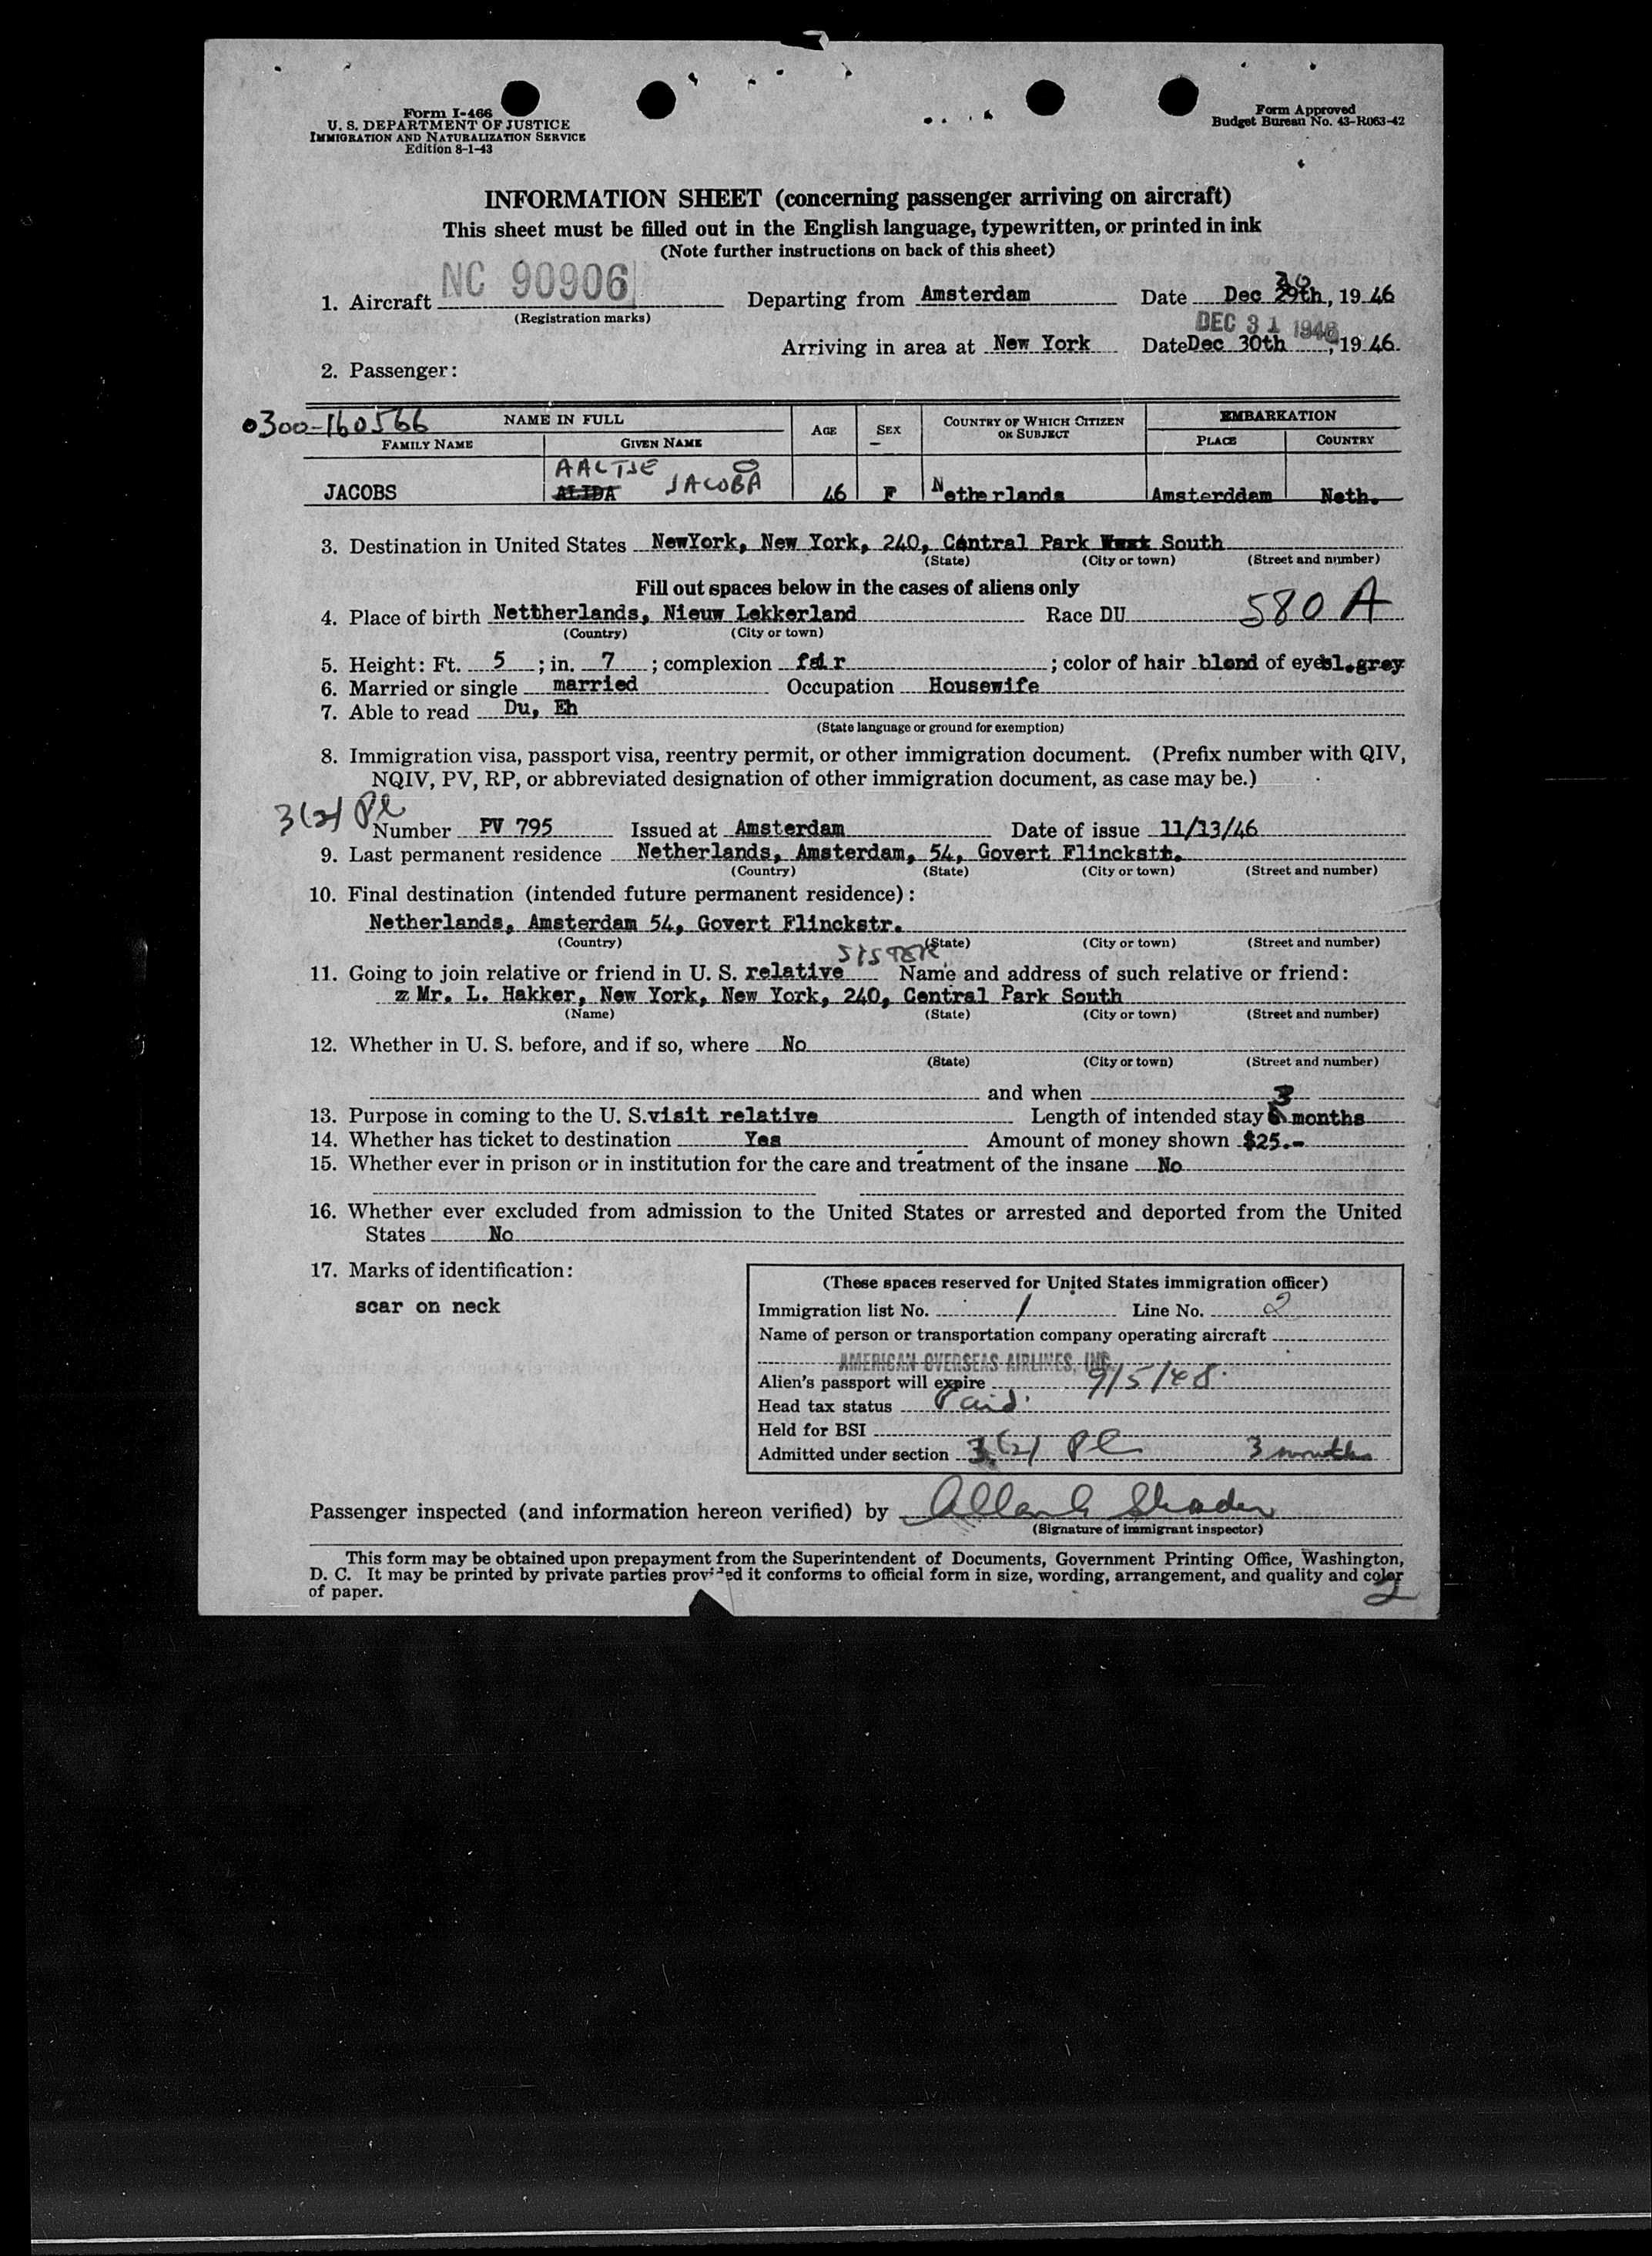 Form I-466
U. S. DEPARTMENT OF JUSTICE
IMMIGRATION AND NATURALIZATION SERVICE
Edition 8-1-43
Form Approved
Budget Bureau No. 43-R063-42
INFORMATION SHEET (concerning passenger arriving on aircraft)
This sheet must be filled out in the English language, typewritten, or printed in ink
(Note further instructions on back of this sheet)
1. Aircraft NC 90906 Departing from Amsterdam Date Dec 29th, 30 1946
(Registration marks)
DEC 31 1946
Arriving in area at New York Date Dec 30th, 1946.
2. Passenger:
0300-160566
NAME IN FULL AGE SEX COUNTRY OF WHICH CITIZEN OR SUBJECT EMBARKATION
FAMILY NAME GIVEN NAME PLACE COUNTRY
AALTJE JACOBA
JACOBS ALIDA 46 F Netherlands Amsterddam Neth.
3. Destination in United States NewYork, New York, 240, Cantral Park West South
(State) (City or town) (Street and number)
Fill out spaces below in the cases of aliens only
4. Place of birth Nettherlands, Nieuw Lekkerland Race DU 580 A
(Country) (City or town)
5. Height: Ft. 5; in. 7; complexion fair; color of hair blond of eyes bl.grey
6. Married or single married Occupation Housewife
7. Able to read Du, Eh
(State language or ground for exemption)
8. Immigration visa, passport visa, reentry permit, or other immigration document. (Prefix number with QIV,
NQIV, PV, RP, or abbreviated designation of other immigration document, as case may be.)
3(2) Pl
Number PV 795 Issued at Amsterdam Date of issue 11/13/46
9. Last permanent residence Netherlands, Amsterdam, 54, Govert Flinckstr.
(Country) (State) (City or town) (Street and number)
10. Final destination (intended future permanent residence):
Netherlands, Amsterdam 54, Govert Flinckstr.
(Country) (State) (City or town) (Street and number)
SISTER
11. Going to join relative or friend in U. S. relative Name and address of such relative or friend:
z Mr. L. Hakker, New York, New York, 240, Central Park South
(Name) (State) (City or town) (Street and number)
12. Whether in U. S. before, and if so, where No
(State) (City or town) (Street and number)
and when
13. Purpose in coming to the U. S. visit relative Length of intended stay 3 months
14. Whether has ticket to destination Yes Amount of money shown $25.-
15. Whether ever in prison or in institution for the care and treatment of the insane No
16. Whether ever excluded from admission to the United States or arrested and deported from the United
States No
17. Marks of identification:
scar on neck
(These spaces reserved for United States immigration officer)
Immigration list No. 1 Line No. 2
Name of person or transportation company operating aircraft
AMERICAN OVERSEAS AIRLINES, INC.
Alien's passport will expire 9/5/48.
Head tax status Paid
Held for BSI
Admitted under section 3(2) Pl 3 months
Passenger inspected (and information hereon verified) by Allan G Shader
(Signature of immigrant inspector)
This form may be obtained upon prepayment from the Superintendent of Documents, Government Printing Office, Washington,
D. C. It may be printed by private parties provided it conforms to official form in size, wording, arrangement, and quality and color
of paper.
2